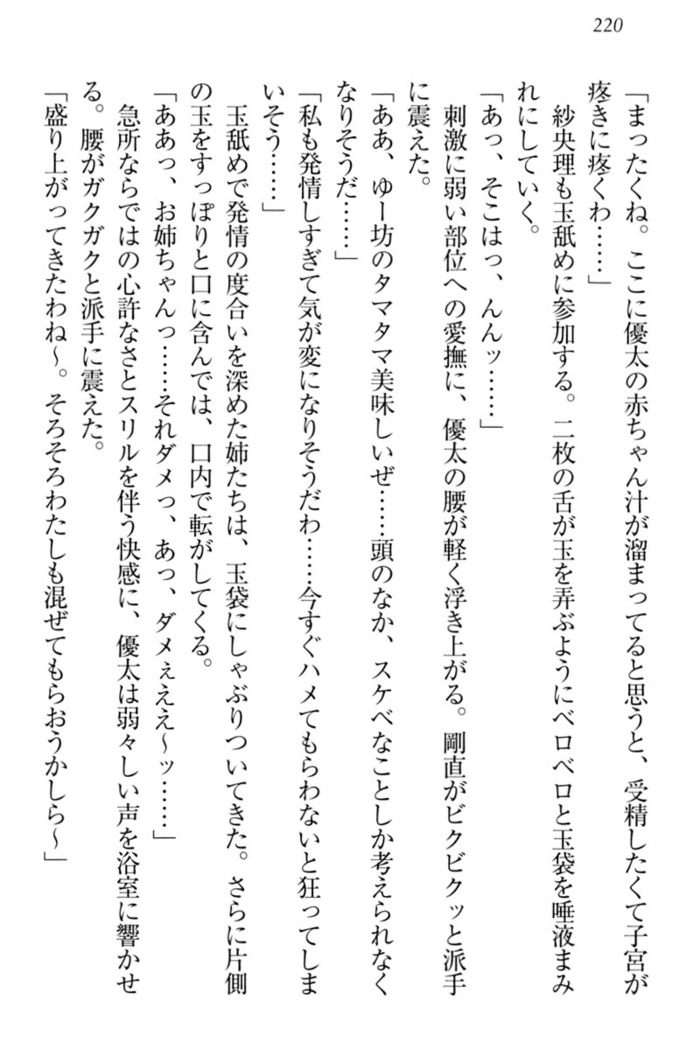 220
「まったくね。ここに優太の赤ちゃん汁が溜まってると思うと、受精したくて子宮が
疼きに疼くわ……」
紗央理も玉舐めに参加する。二枚の舌が玉を弄ぶようにベロベロと玉袋を唾液まみ
れにしていく。
「あっ、そこはっ、んんッ……」
刺激に弱い部位への愛撫に、優太の腰が軽く浮き上がる。剛直がビクビクッと派手
に震えた。
「ああ、ゆー坊のタマタマ美味しいぜ……頭のなか、スケベなことしか考えられなく
なりそうだ……」
「私も発情しすぎて気が変になりそうだわ……今すぐハメてもらわないと狂ってしま
いそう……」
玉舐めで発情の度合いを深めた姉たちは、玉袋にしゃぶりついてきた。さらに片側
の玉をすっぽりと口に含んでは、口内で転がしてくる。
「ああっ、お姉ちゃんっ……それダメっ、あっ、ダメぇええ～ッ……」
急所ならではの心許なさとスリルを伴う快感に、優太は弱々しい声を浴室に響かせ
る。腰がガクガクと派手に震えた。
「盛り上がってきたわね～。そろそろわたしも混ぜてもらおうかしら～」